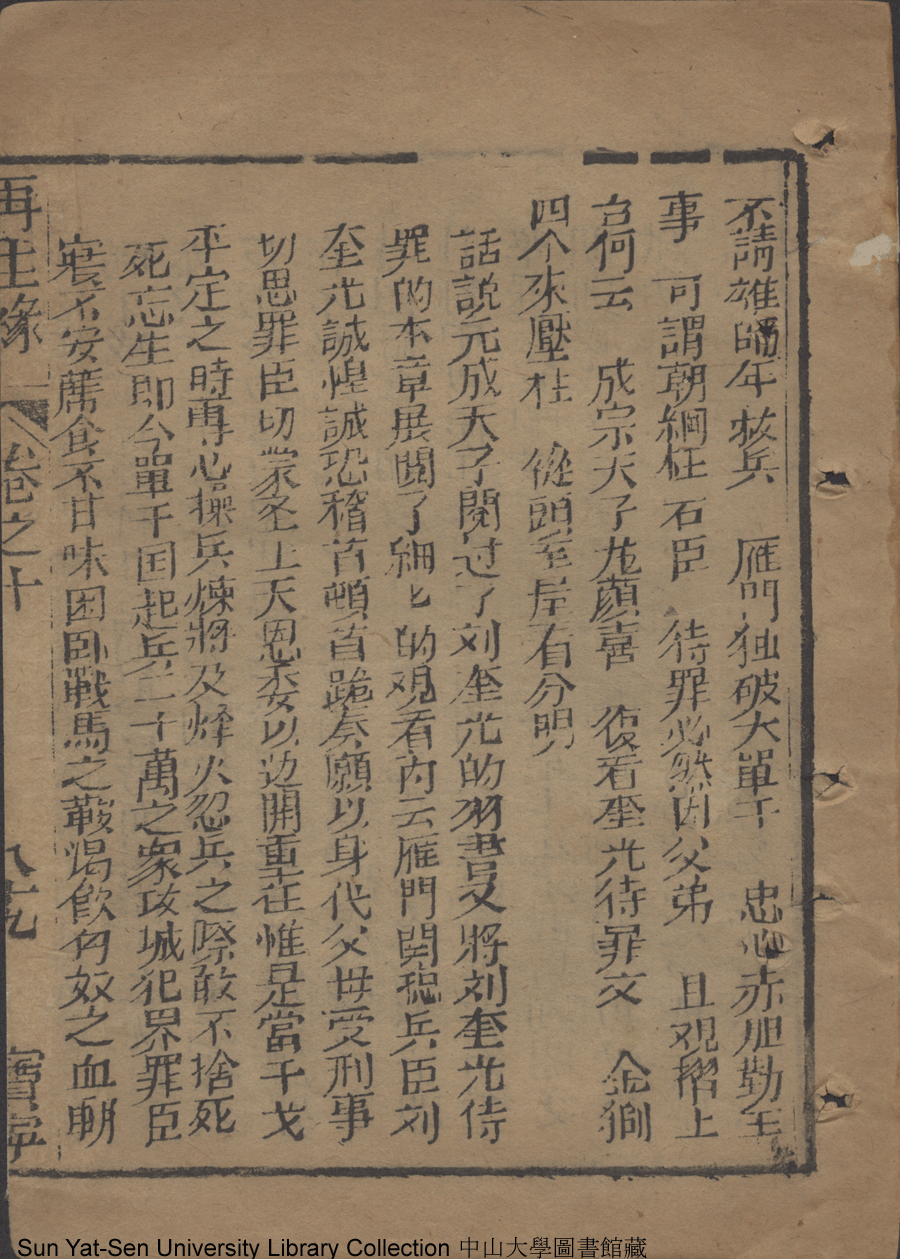 不請雄師年救兵　雁門独破大單于　忠心赤胆勤王
事　可謂朝綱柱石臣　待罪必然因父弟　且观摺上
言何云　成宗天子龙顔喜　復看奎光待罪文　金狮
四个來壓柱　從頭至尾看分明
話説元成天子閱过了刘奎光的羽書又將刘奎光待
罪的本章展開了細匕的观看内云雁門関総兵臣刘
奎光誠惶誠恐稽首頓首跪奏願以身代父母受刑事
切思罪臣切蒙圣上天恩委以边開重任惟是當干戈
平定之時専心操兵煉將及烽火忽兵之際敢不捨死
死忘生即今單于国起兵二十萬之衆攻城犯界罪臣
寢不安蓆食不甘味困卧戰馬之鞍渴飲匈奴之血朝
再生緣　卷之十　八十九　寶寧
Sun Yat-Sen University Library Collection 中山大學圖書館藏